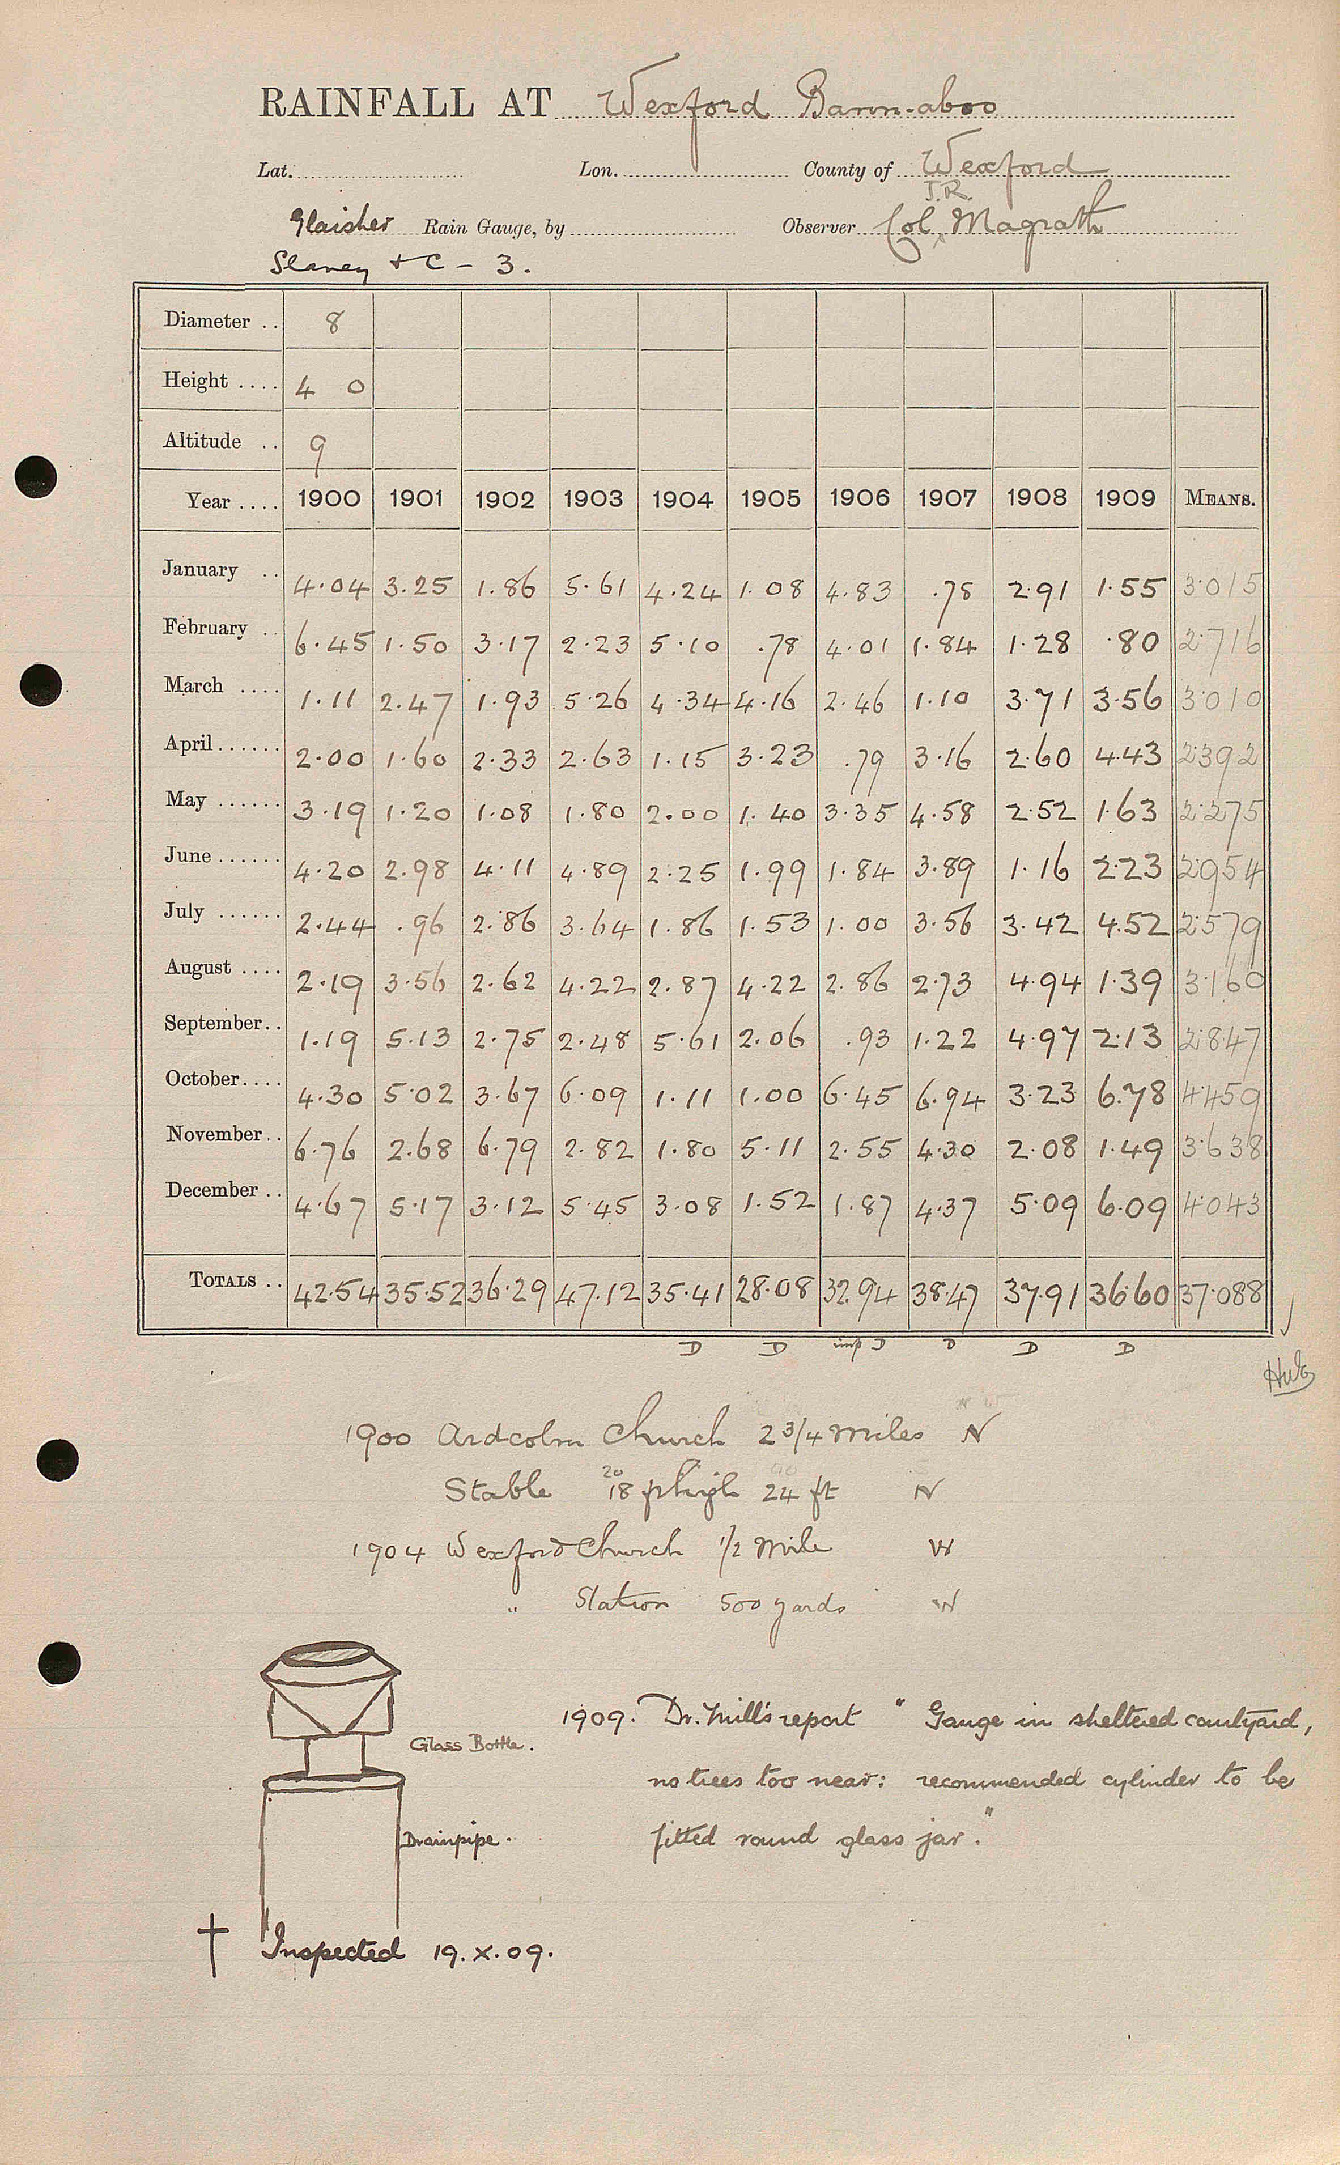 RAINFALL AT Wexford Bann-aboo
Lat. Lon. County of Wexford
Glaisher Rain Gauge, by Observer Col. J.R. Magrath
Slaney + C - 3.
Diameter .. 8
Height .... 4 0
Altitude .. 9
Year .... 1900 1901 1902 1903 1904 1905 1906 1907 1908 1909 MEANS.
January .. 4.04 3.25 1.86 5.61 4.24 1.08 4.83 .78 2.91 1.55 3.015
February .. 6.45 1.50 3.17 2.23 5.10 .78 4.01 1.84 1.28 .80 2.716
March .... 1.11 2.47 1.93 5.26 4.34 4.16 2.46 1.10 3.71 3.56 3.010
April...... 2.00 1.60 2.33 2.63 1.15 3.23 .79 3.16 2.60 4.43 2.392
May ...... 3.19 1.20 1.08 1.80 2.00 1.40 3.35 4.58 2.52 1.63 2.275
June...... 4.20 2.98 4.11 4.89 2.25 1.99 1.84 3.89 1.16 2.23 2.954
July ...... 2.44 .96 2.86 3.64 1.86 1.53 1.00 3.56 3.42 4.52 2.579
August .... 2.19 3.56 2.62 4.22 2.87 4.22 2.86 2.73 4.94 1.39 3.160
September.. 1.19 5.13 2.75 2.48 5.61 2.06 .93 1.22 4.97 2.13 2.847
October.... 4.30 5.02 3.67 6.09 1.11 1.00 6.45 6.94 3.23 6.78 4.459
November.. 6.76 2.68 6.79 2.82 1.80 5.11 2.55 4.30 2.08 1.49 3.638
December .. 4.67 5.17 3.12 5.45 3.08 1.52 1.87 4.37 5.09 6.09 4.043
TOTALS .. 42.54 35.52 36.29 47.12 35.41 28.08 32.94 38.47 37.91 36.60 37.088
D D imp D D D D
1900 Ardcolm Church 2 3/4 miles N
20
Stable 18 ft high 24 ft N
1904 Wexford Church 1/2 Mile W
" Station 500 yards W
1909. Dr. Mill's report "Gauge in sheltered courtyard,
Glass Bottle.
no trees too near: recommended cylinder to be
Drainpipe.
fitted round glass jar."
† Inspected 19.X.09.